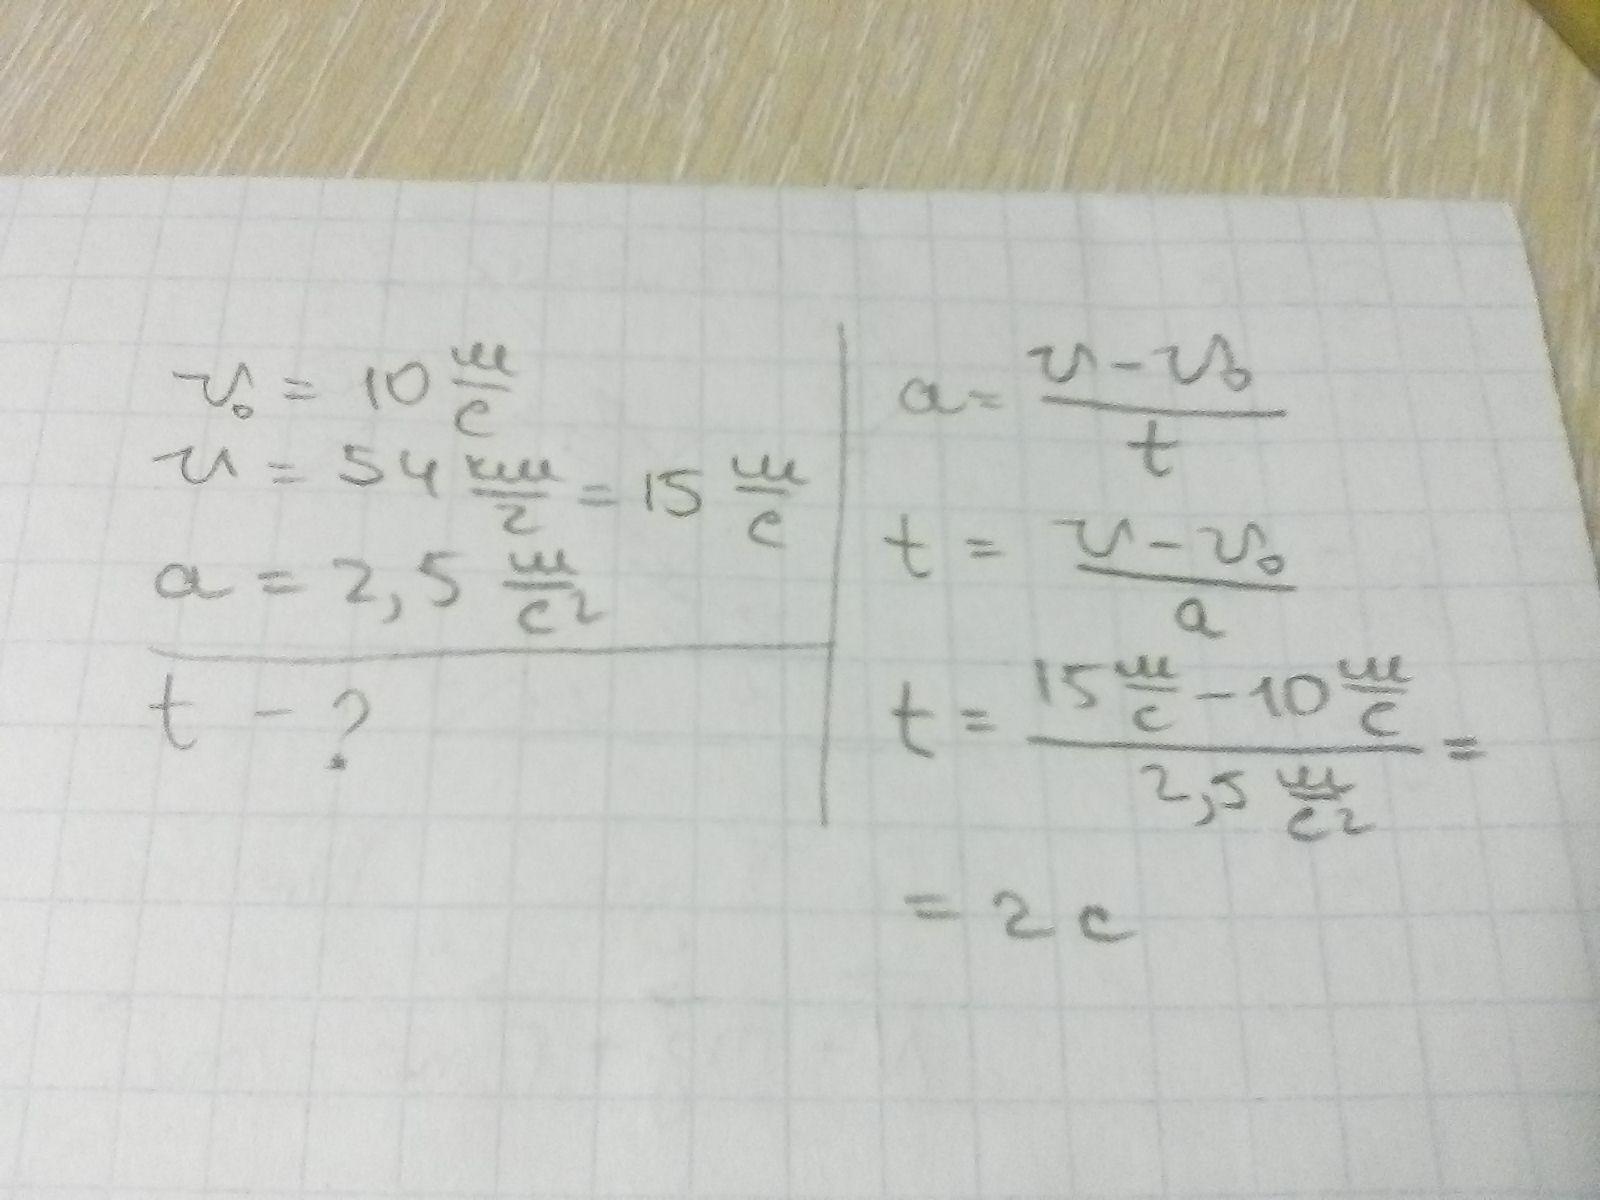 v₀ = 10 м/с
v = 54 км/г = 15 м/с
a = 2,5 м/с²
t - ?
a = (v - v₀)/t
t = (v - v₀)/a
t = (15 м/с - 10 м/с)/(2,5 м/с²) =
= 2 с